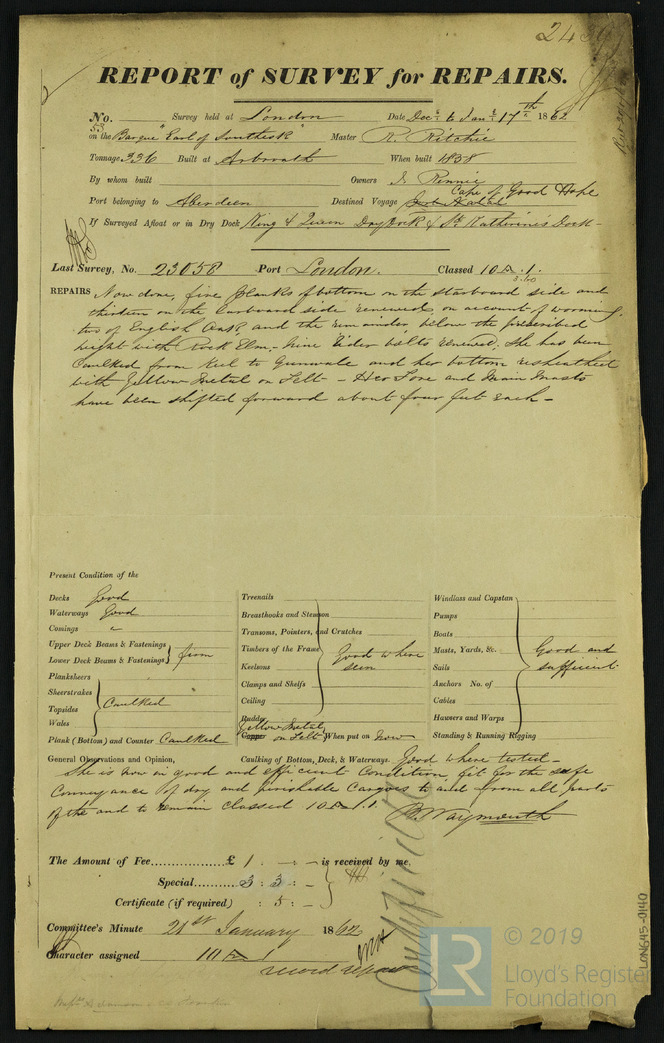 REPORT of SURVEY for REPAIRS.
No. 53 Survey held at London Date Dec 6 Jan 17th 1862
on the Barque "Earl of Southesk" Master R. Ritchie
Tonnage 336 Built at Arbroath When built 1838
By whom built Owners J. Rennie
Port belonging to Aberdeen Destined Voyage Cape of Good Hope
If Surveyed Afloat or in Dry Dock King & Queen Dry Dock & St. Katherine's Dock
Last Survey, No. 23058 Port London. Classed 10 A . 1.
REPAIRS Now done, five planks of bottom on the starboard side and
thirteen on the larboard side renewed, on account of worming,
two of English Oak and the remainder, below the prescribed
height with Rock Elm. Nine Rider bolts renewed. She has been
Caulked from Keel to Gunwale and her bottom resheathed
with Yellow Metal on Felt - Her Fore and Main Masts
have been shifted forward about four feet each -
Present Condition of the
Decks Good
Waterways Good
Comings "
Upper Deck Beams & Fastenings
Lower Deck Beams & Fastenings firm
Planksheers
Sheerstrakes
Topsides Caulked
Wales
Plank (Bottom) and Counter Caulked
Treenails
Breasthooks and Stemson
Transoms, Pointers, and Crutches
Timbers of the Frame Good where
Keelsons seen
Clamps and Shelfs
Ceiling
Rudder
Yellow Metal
Copper on Felt When put on Now
Windlass and Capstan
Pumps
Boats
Masts, Yards, &c. Good and
Sails sufficient
Anchors No. of
Cables
Hawsers and Warps
Standing & Running Rigging
General Observations and Opinion, Caulking of Bottom, Deck, & Waterways. Good where tested -
She is now in good and efficient Condition, fit for the safe
Conveyance of dry and perishable Cargoes to and from all parts
of the and to remain classed 10 A 1.
Waymouth
The Amount of Fee............... £ 1 . - . - is received by me,
Special......... 3 : 3 : -
Certificate (if required) : 5 : -
Committee's Minute 21st January 1862
Character assigned 10 A 1
record repairs
LR
© 2019
Lloyd's Register
Foundation
LON645-0140